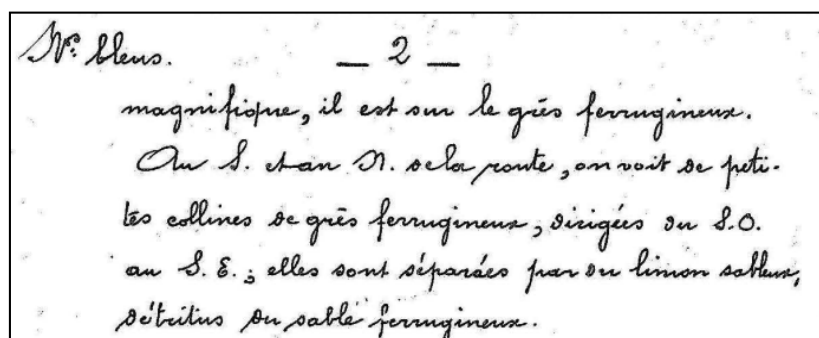 Nos bleus. — 2 —
magnifique, il est sur le grès ferrugineux.
Au S. et au N. de la route, on voit de peti-
tes collines de grès ferrugineux, dirigées du S.O.
au S.E.; elles sont séparées par du limon sableux,
détritus du sable ferrugineux.